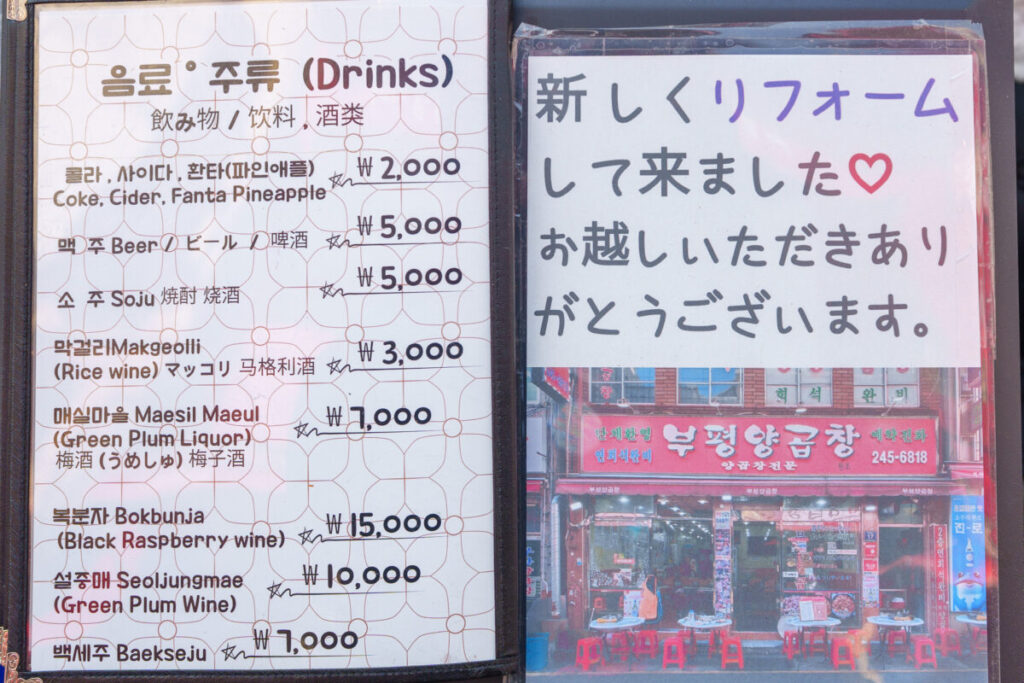 음료 ° 주류 (Drinks)
飲み物 / 饮料 , 酒类
콜라 , 사이다 , 환타(파인애플) ₩ 2,000
Coke, Cider, Fanta Pineapple
맥 주 Beer / ビール / 啤酒 ₩ 5,000
소 주 Soju 焼酎 烧酒 ₩ 5,000
막걸리Makgeolli
(Rice wine) マッコリ 马格利酒 ₩ 3,000
매실마을 Maesil Maeul ₩ 7,000
(Green Plum Liquor)
梅酒 (うめしゅ) 梅子酒
복분자 Bokbunja
(Black Raspberry wine) ₩ 15,000
설중매 Seoljungmae ₩ 10,000
(Green Plum Wine)
백세주 Baekseju ₩ 7,000
新しくリフォーム
して来ました♡
お越しいただきあり
がとうございます。
석 완 비
단체환영
연회석완비
부평양곱창
양곱창전문
예약전화
245-6818
부평양곱창
진로
2층연회석완비